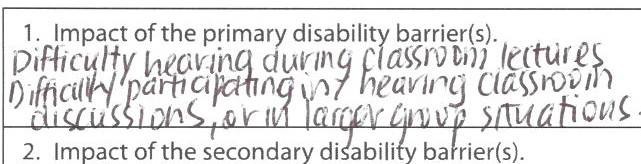 1. Impact of the primary disability barrier(s).
Difficulty hearing during classroom lectures
Difficulty participating in/hearing classroom
discussions, or in larger group situations.
2. Impact of the secondary disability barrier(s).